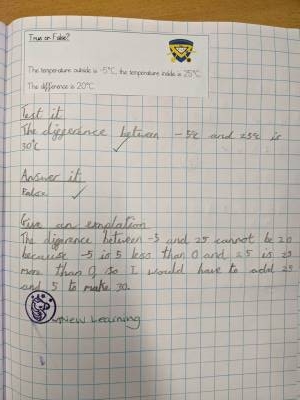 True or False?
The temperature outside is -5°C, the temperature inside is 25°C.
The difference is 20°C.
Test it
The difference between -5°c and 25°c is
30°c
Answer it
False
Give an explation
The difference between -5 and 25 cannot be 20
because -5 is 5 less than 0 and 25 is 25
more than 0, so I would have to add 25
and 5 to make 30.
New Learning